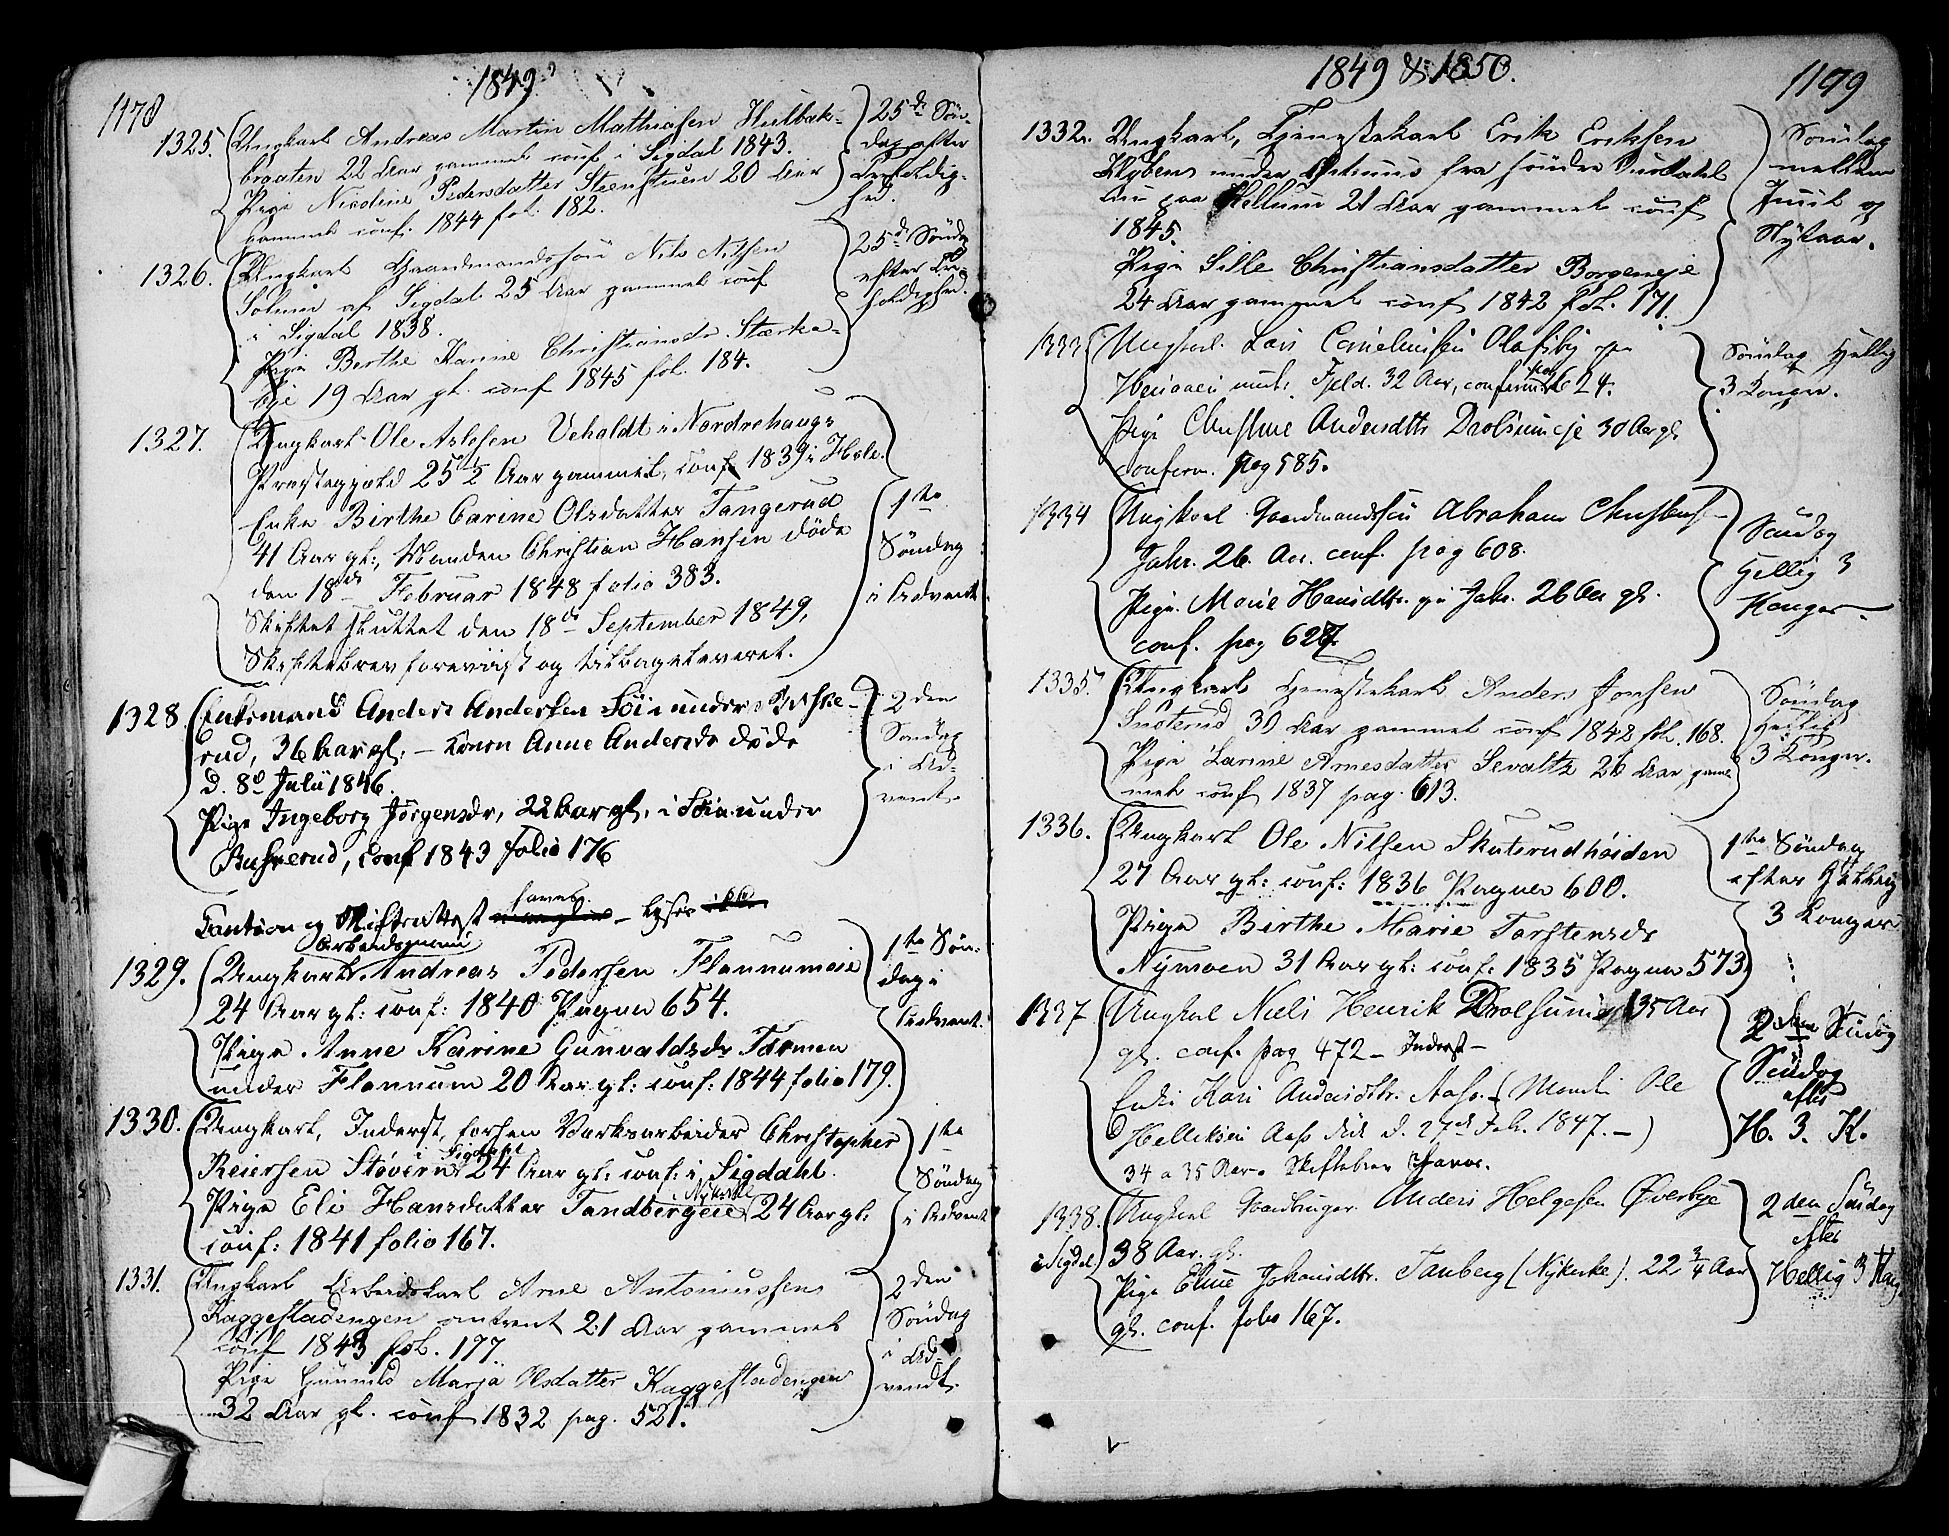 1178
1849
1325. Ungkarl Andreas Martin Mathiasen Hulbak-
braaten 22 Aar gammel conf i Sigdal 1843.
Pige Nicoline Pedersdatter Steenstuen 20 Aar
gammel conf. 1844 fol. 182.
25de Søn-
dag efter
Trefoldig-
hed.
1326. Ungkarl Gaardmandssøn Nils Nilsen
Solum af Sigdal 25 Aar gammel conf
i Sigdal 1838.
Pige Berthe Karine Christiansdr. Stærke-
eje 19 Aar gl. conf 1845 fol. 184.
25de Søndag
efter Tre-
foldighed.
1327. Ungkarl Ole Aslesen Veholdt i Nordrehougs
Præstegjeld 25½ Aar gammel, conf. 1839 i Hole.
Enke Birthe Carine Olsdatter Tangerud
41 Aar gl:, Manden Christian Hansen døde
den 18de Februar 1848 folio 383.
Skiftet sluttet den 18de September 1849,
Skiftebrev foreviist og tilbageleveret.
1ste
Søndag
i Advent
1328. Enkemand Anders Andersen under
rud, 36 Aar gl. - Konen Anne Andersdr døde
d. 8de Julii 1846.
Pige Ingeborg Jörgensdr, 22 Aar gl, i under
conf 1843 folio 176
2den
Søndag
i Ad-
vent.
Caution og Skifteattest haves
Arbeidsmand
1329. Ungkarl Andreas Pedersen Flannumeie
24 Aar gl: conf: 1840 Pagina 654.
Pige Anne Karine Gunvaldsdr Tormoen
under Flannum 20 Aar gl: conf: 1844 folio 179.
1ste Søn-
dag i
Advent.
1330. Ungkarl, Inderst, forhen Værksarbeider Christopher
Reiersen Støvern i Sigdahl 24 Aar gl: conf: i Sigdahl.
Pige Eli Hansdatter Tandbergeie i Nykirke 24 Aar gl:
conf: 1841 folio 167.
1ste
Søndag
i Advent
1331. Ungkarl Arbeidskarl Arne Antoniussen
Kaggestadengen omtrent 21 Aar gammel
conf 1843 fol. 177.
Pige Gunnild Marja Olsdatter Kaggestadengen
32 Aar gl. conf 1832 pag. 521.
2den
Søndag
i Ad-
vendt.
1849 & 1850.
1179
1332. Ungkarl, Tjenestekarl Erik Eriksen
under fra søndre
nu paa Hellum 21 Aar gammel conf
1845.
Pige Sille Christiansdatter Borgeneje
24 Aar gammel conf 1842 fol. 171.
Søndag
mellem
Juul og
Nytaar.
1333 Ungkarl Lars Corneliussen Olafsby
32 Aar, conf pag 624.
Pige Christine Andersdttr Drolsumeje 30 Aar gl.
conferm. pag 585.
Søndag Hellig
3 Konger.
1334 Ungkarl Gaardmandssøn Abraham
Jahr. 26 Aar. conf. pag 608.
Pige Marie Hansdttr. paa Jahr. 26 Aar gl.
conf. pag 627.
Søndag
Hellig 3
Konger
1335. Ungkarl Tjenestekarl Anders Jonsen
Snoterud 30 Aar gammel conf 1842 fol. 168.
Pige Karine Arnesdatter Sevaltz 26 Aar gam-
mel conf 1837 pag. 613.
Søndag
Hellig
3 Konger.
1336. Ungkarl Ole Nilsen Skuterudhøiden
27 Aar gl: conf: 1836 Pagina 600.
Pige Birthe Marie Torstensdr
Nymoen 31 Aar gl: conf: 1835 Pagina 573.
1ste Søndag
efter Hellig
3 Konger
1337 Ungkarl Niels Henrik Drolsum 35 Aar
gl. conf. pag 472 - Inderst -
Enke Kari Andersdttr. Aass. (Manden Ole
Helleksen Aass død d. 27de Feb. 1847. -)
34 a 35 Aar. Skiftebrev haves.
2den
Søndag
efter
H. 3. K.
1338. Ungkarl Gaardbruger Anders Helgesen Øverbye
i Sigdal) 38 Aar. gl.
Pige Eline Johansdttr. Tanberg (Nykirke). 22 3/4 Aar
gl. conf. folio 167.
2den Søndag
efter
Hellig 3 Kong